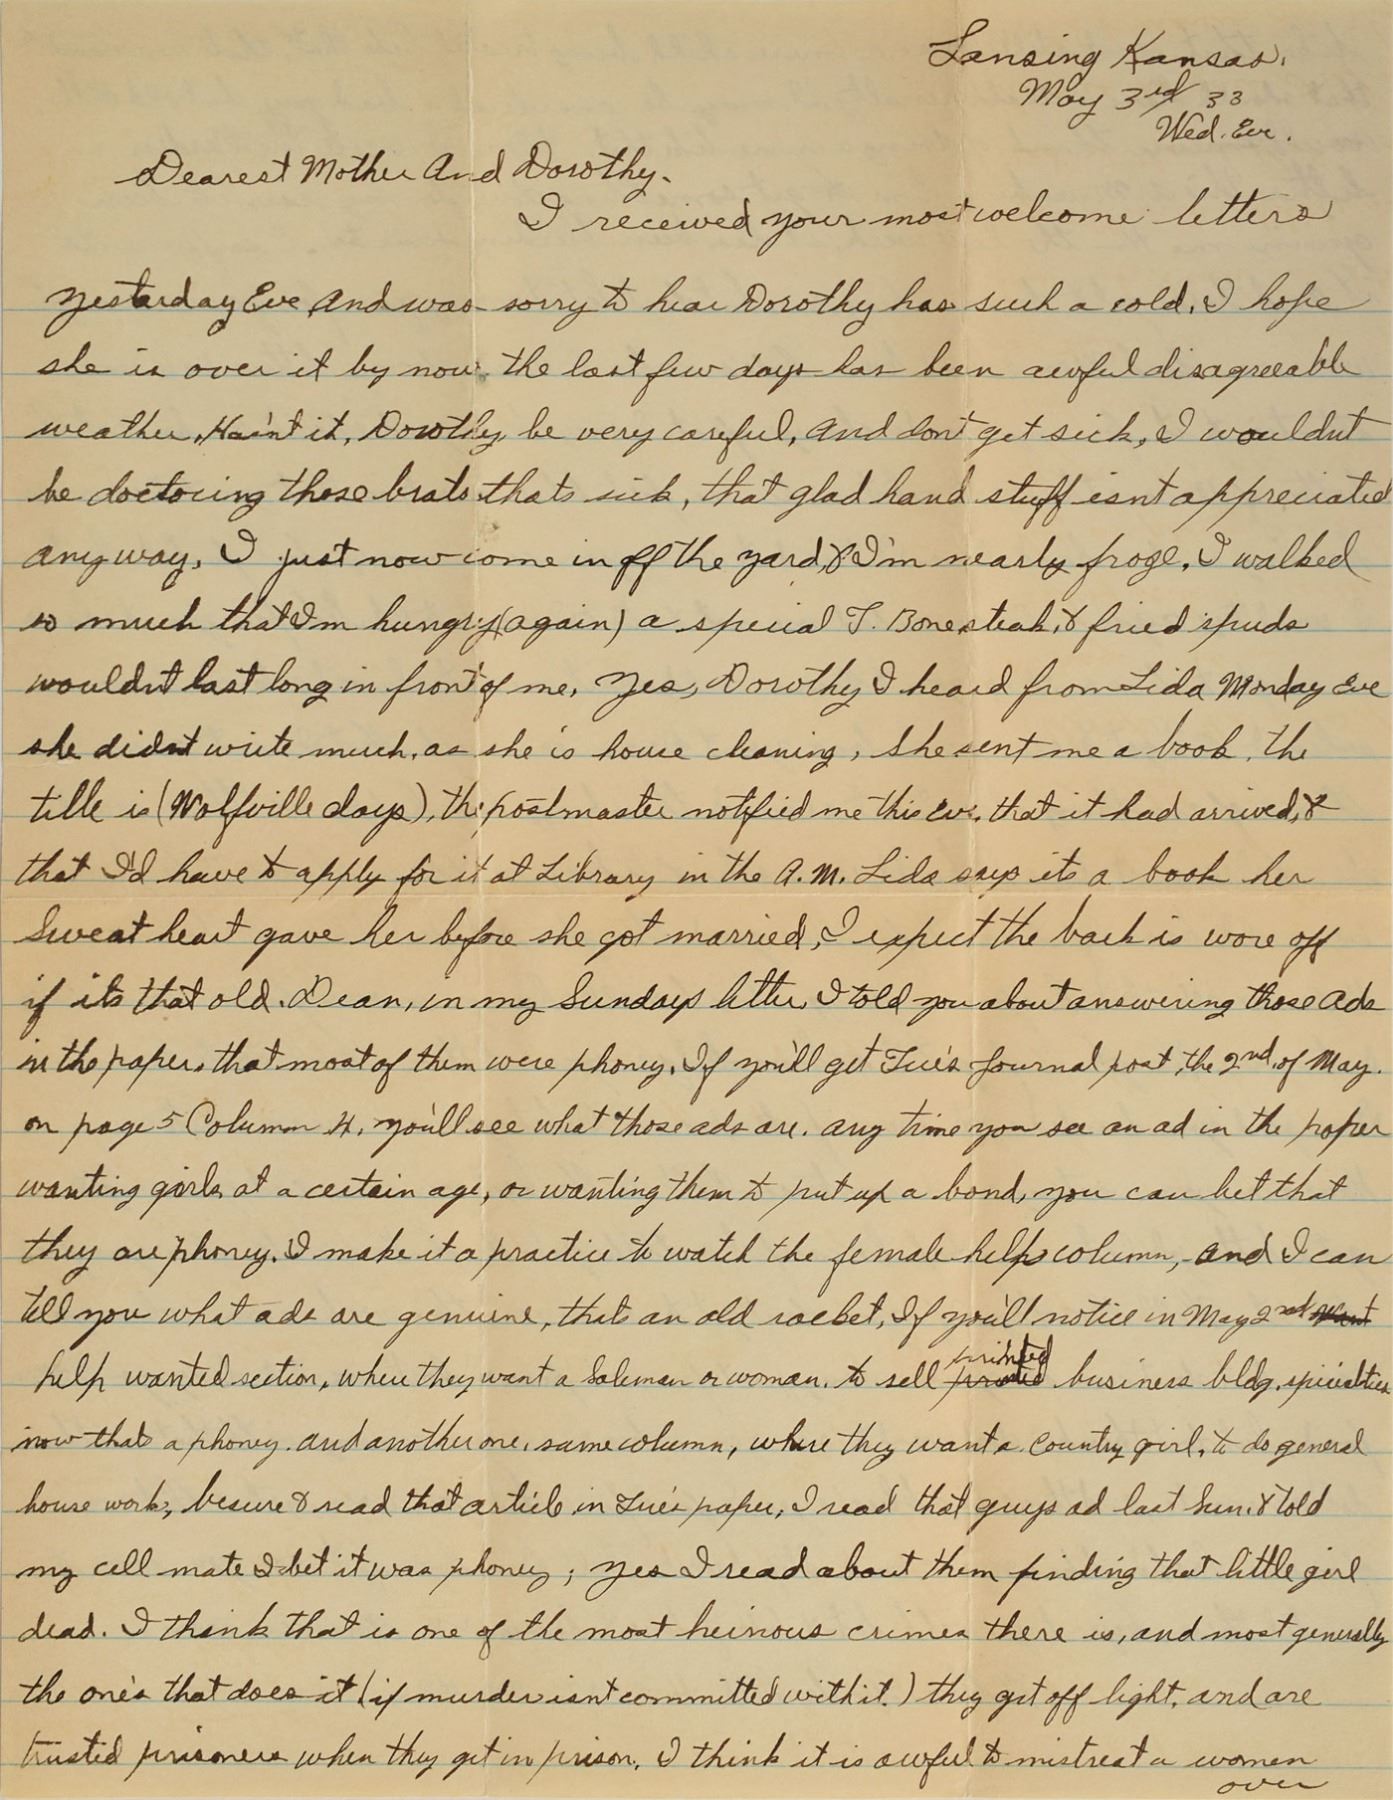 Lansing Kansas.
May 3rd 33
Wed. Eve.
Dearest Mother And Dorothy.
I received your most welcome letters
yestarday Eve, And was sorry to hear Dorothy has such a cold. I hope
she is over it by now. the last few days has been awful disagreeable
weather, Hain't it, Dorothy be very careful, and dont get sick, I wouldnt
be doctoring those brats thats sick, that glad hand stuff isnt appreciated
any way, I just now come in off the yard, & I'm nearly froze, I walked
so much that I'm hungry (again) a special T. Bone steak, & fried spuds
wouldnt last long in front of me. Yes, Dorothy I heard from Lida Monday Eve
she didnt write much, as she is house cleaning, she sent me a book. the
title is (Wolfville days), the postmaster notified me this Eve. that it had arrived, &
that I'd have to apply for it at Library in the A.M. Lida says its a book her
Sweat heart gave her before she got married, I expect the back is wore off
if its that old. Dean, in my Sundays letter, I told you about answering those Ads
in the paper, that most of them were phoney, If you'll get Tue's Journal post, the 2nd. of May.
on page 5 Column 4, you'll see what those ads are. any time you see an ad in the paper
wanting girls at a certain age, or wanting them to put up a bond, you can bet that
they are phoney. I make it a practice to watch the female help column, and I can
tell you what ads are genuine, thats an old racket, If you'll notice in May 2nd want
help wanted section, where they want a Saleman or woman. to sell printed business bldg. specialties
now thats a phoney. and another one, same column, where they want a Country girl, to do general
house work, be sure & read that article in Tue's paper, I read that guys ad last Sun. & told
my cell mate I bet it was phoney; Yes I read about them finding that little girl
dead. I think that is one of the most heinous crimes there is, and most generally
the one's that does it (if murder isnt committed with it.) they get off light, and are
trusted prisoners when they get in prison, I think it is awful to mistreat a women
over